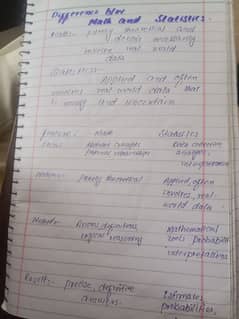 Difference b/w
Math and Statistics.
Math:- purely theoretical and
doesn't necessarily
involve real world
data
Statistics:- Applied and often
involves real world data that
is messy and uncertain
Feature: Math Statistics
Focus Abstract concepts Data collection
relationships analysis
interpretation
Nature:- Purely theoretical Applied, often
involves real-
world data
Methods:- Mathematical
logical reasoning tools probability
interpretation
Results:- precise, definitive Estimates,
answers. probabilities,